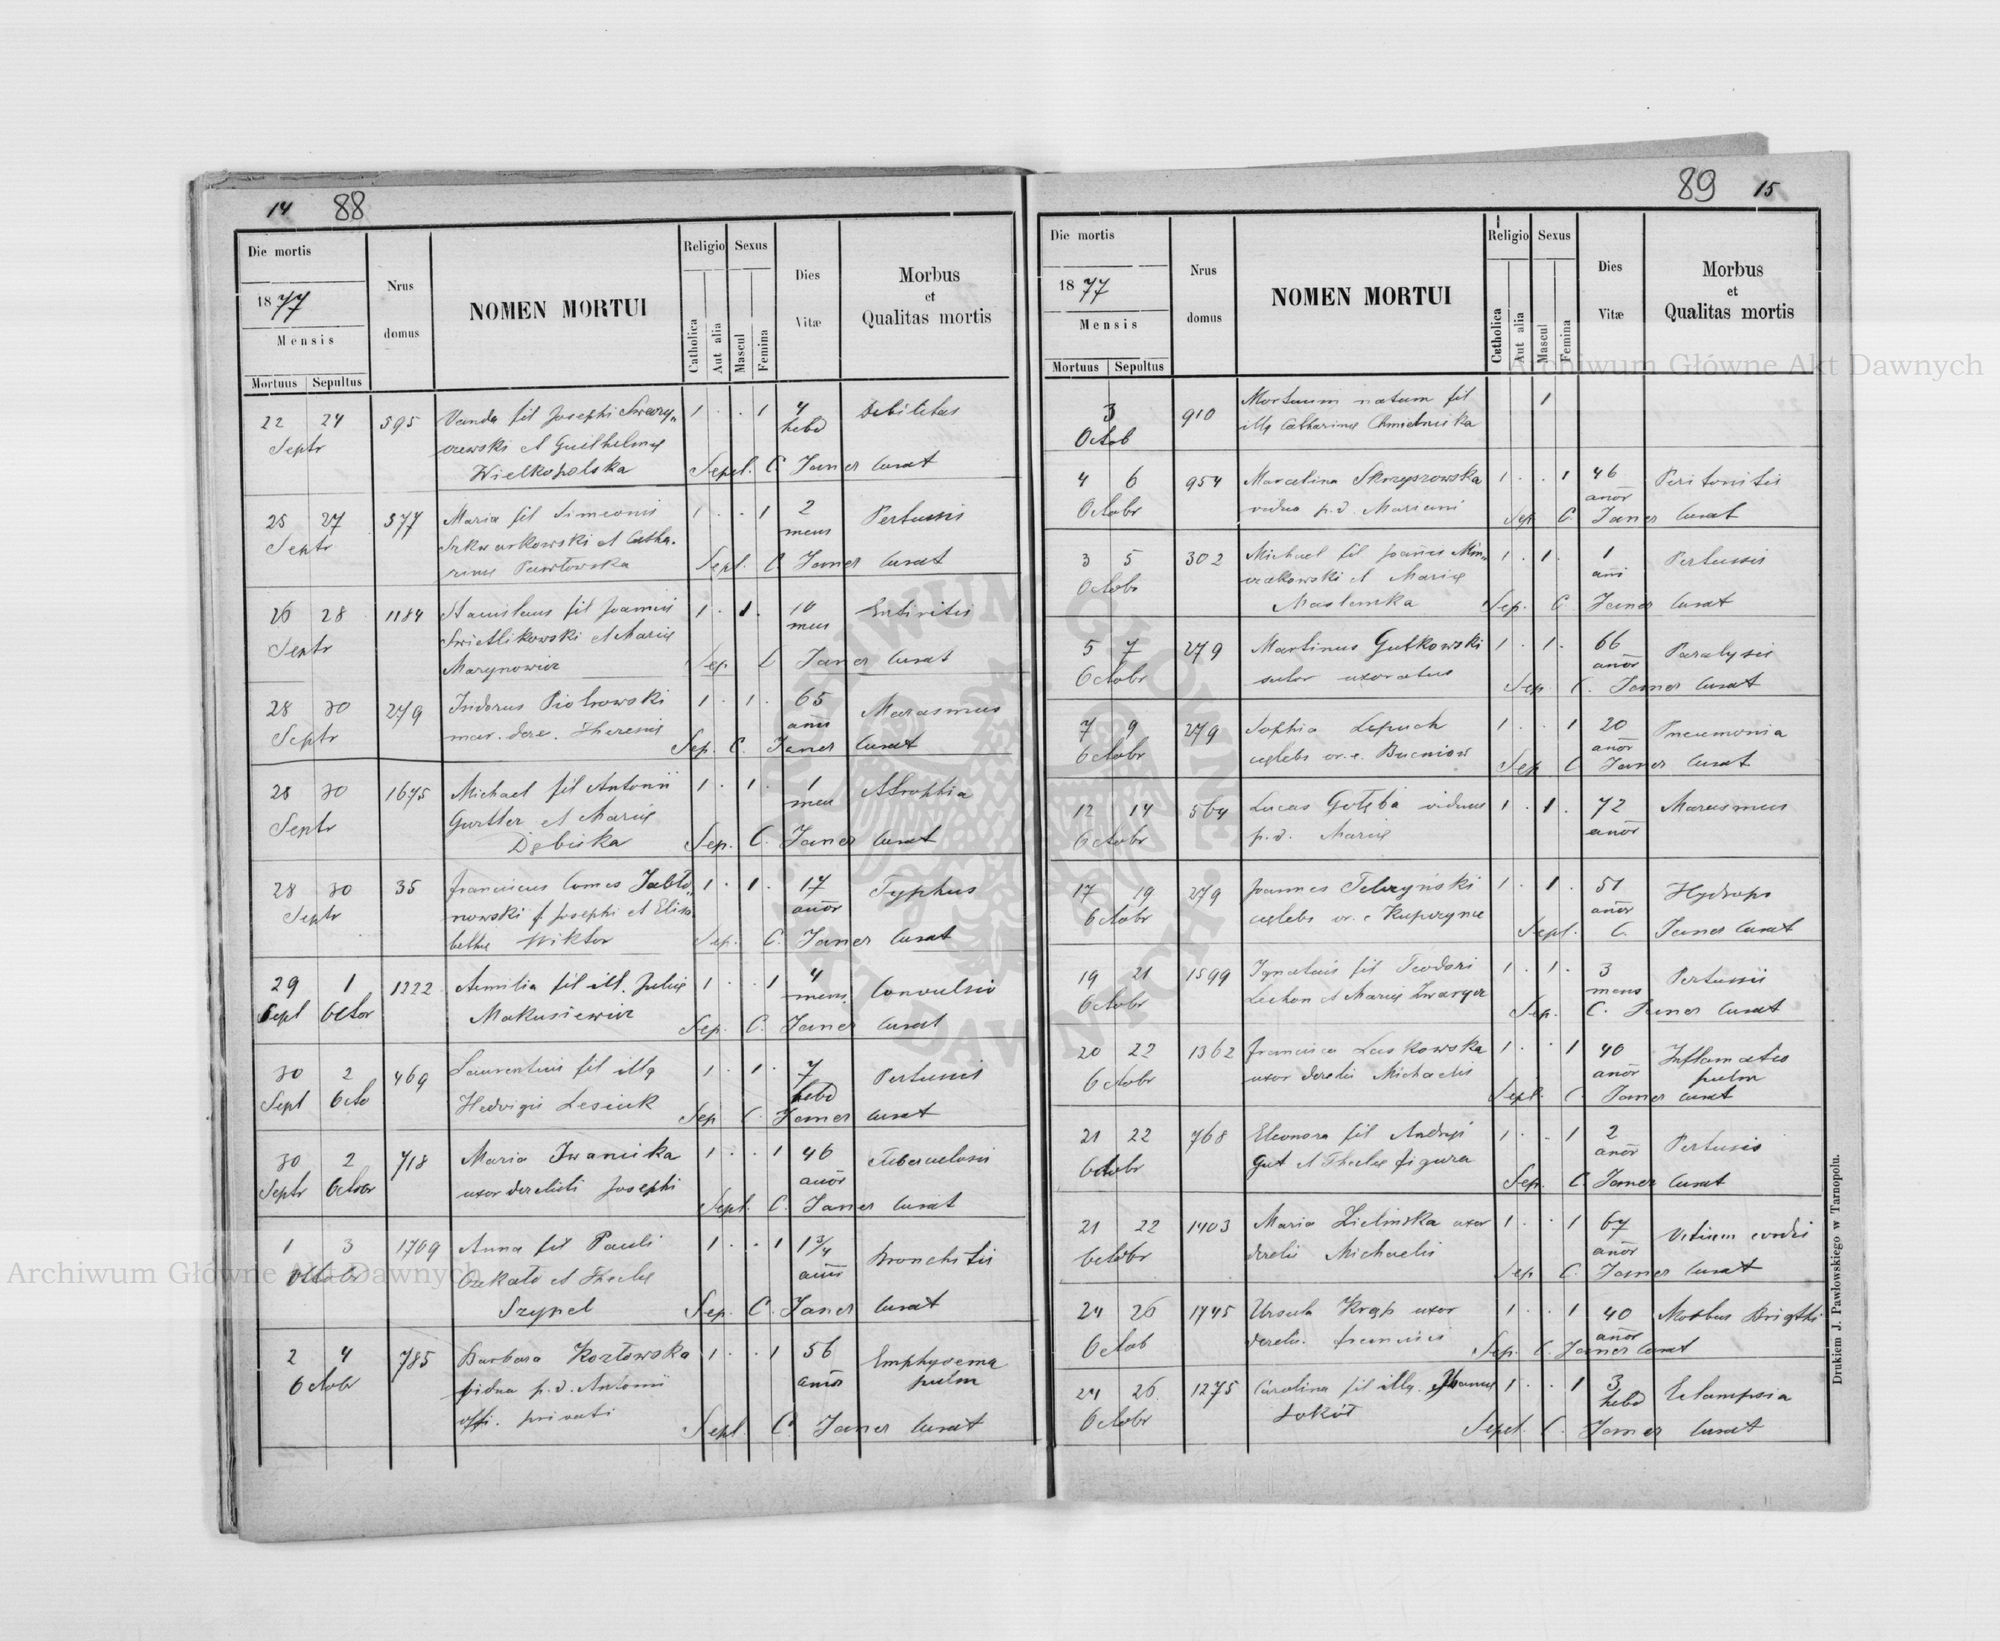 14 88
Die mortis
1877
Mensis
Mortuus Sepultus
Nrus domus
NOMEN MORTUI
Religio
Catholica
Aut alia
Sexus
Mascul
Femina
Dies Vitæ
Morbus
et
Qualitas mortis
22 24 595 Vanda fil Josephi 1 . . 1 4 Debilitas
Septr et Guilhelmę hebd
Wielkopolska Sepel. C. Janer Curat
25 27 577 Maria fil Simeonis 1 . . 1 2 Pertussis
Septr Szkwarkowski et Catha- mens
rinę Pawłowska Sepl. C Janer Curat
26 28 1184 Stanislaus fil Joannis 1 . 1 . 10
Septr Swietlikowski et Marię mens
Marynowicz Sep Janer Curat
28 30 279 Isidorus Piotrowski 1 . 1 . 65 Marasmus
Septr mar. dere. Theresię anń Sep. C. Janer Curat
28 30 1675 Michael fil Antonii 1 . 1 . 1 Atrophia
Septr Gurtler et Marię men
Dębicka Sep. C. Janer Curat
28 30 35 Franciscus Comes Jabło- 1 . 1 . 17 Typhus
Septr nowski f Josephi et Elisa- anor
bethę Wiktor Sep. C. Janer Curat
29 1 1222 Aemilia fil ill. Julię 1 . . 1 4 Convulsio
Sept Octor Makusiewicz mens. Sep. C. Janer Curat
30 2 469 Laurentius fil illg 1 . 1 . 7 Pertussis
Sept Octo Hedvigis Lesiuk hebd Sep C Janer Curat
30 2 718 Maria Iwanicka 1 . . 1 46 Tuberculosis
Septr Octobr uxor derelicti Josephi anor Sepl. C. Janer Curat
1 3 1709 Anna fil Pauli 1 . . 1 1 3/4 Bronchitis
Octobr et Theclę anni
Szypel Sep. C. Janer Curat
2 4 785 Barbara Kozłowska 1 . . 1 56 Emphysema
Octobr vidua p.d. Antonii anor pulm
offi. privati Sepl. C. Janer Curat
89 15
Die mortis
1877
Mensis
Mortuus Sepultus
Nrus domus
NOMEN MORTUI
Religio
Catholica
Aut alia
Sexus
Mascul
Femina
Dies Vitæ
Morbus
et
Qualitas mortis
3 910 Mortuum natum fil 1
Octob illg Catharinę Chmielnicka
4 6 954 Marcelina Skrzyszowska 1 . . 1 46 Peritonitis
Octobr vidua p.d. Mariani anor Sep. C. Janer Curat
3 5 302 Michael fil Joannis 1 . 1 . 1 Pertussis
Octobr et Marię ani
Maslanka Sep. C. Janer Curat
5 7 279 Martinus Gutkowski 1 . 1 . 66 Paralysis
Octobr sutor uxoratus anor Sep. C. Janer Curat
7 9 279 Sophia Lepuch 1 . . 1 20 Pneumonia
Octobr cęlebs or. e. Bucniow anor Sep C Janer Curat
12 14 564 Lucas Gołęba viduus 1 . 1 . 72 Marasmus
Octobr p.d. Marię anor
17 19 279 Joannes 1 . 1 . 51 Hydrops
Octobr cęlebs or. e Kupczynce anor Sepl. C. Janer Curat
19 21 1599 Ignatius fil Teodori 1 . 1 . 3 Pertussis
Octobr Lechon et Marię Zwarycz mens Sep. C. Janer Curat
20 22 1362 Francisca Laskowska 1 . . 1 40 Inflamatio
Octobr uxor derelic Michaelis anor pulm
Sepl. C. Janer Curat
21 22 768 Eleonora fil Andręi 1 . . 1 2 Pertussis
Octobr Gut et Theclę Figura anor Sep. C. Janer Curat
21 22 1403 Maria Zielinska uxor 1 . . 1 67 Vitium cordis
Octobr derelic Michaelis anor Sep C. Janer Curat
24 26 1745 Ursula Kręp uxor 1 . . 1 40 Morbus Brigthi
Octob derelic. Francisci anor Sep. C. Janer Curat
24 26 1275 Carolina fil illg. Joannę 1 . . 1 3 Eclampsia
Octobr Sokół hebd Sepel. C. Janer Curat
Drukiem J. Pawłowskiego w Tarnopolu.
Archiwum Główne Akt Dawnych
Archiwum Główne Akt Dawnych
ARCHIWUM GŁÓWNE AKT DAWNYCH